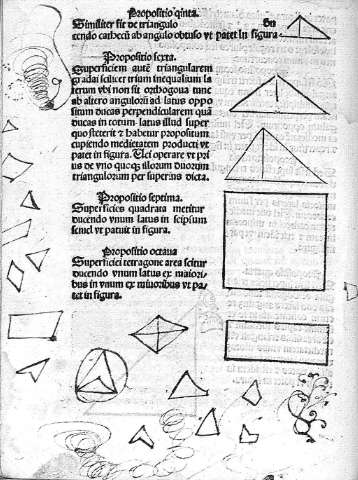 Propositio quinta.
Similiter sit de triangulo
cendo cathecũ ab angulo obtuso vt patet in figura
Propositio sexta.
Superficiem autẽ triangularem
gradai scilicet trium inequalium la
terum vbi non sit orthogona tunc
ab altero angulorũ ad latus oppo
situm ducas perpendicularem quã
ducas in totum latus illud super
quo steterit & habetur propositum
cupiendo medietatem producti vt
patet in figura. Uel operare vt pri
us de vno quoqȝ illorum duorum
triangulorum per superius dicta.
Propositio septima.
Superficies quadrata metitur
ducendo vnum latus in seipsum
semel vt patuit in figura.
Propositio octaua
Superficiei tetragone area scitur
ducendo vnum latus ex maiori
bus in vnum ex minoribus vt pa
tet in figura.